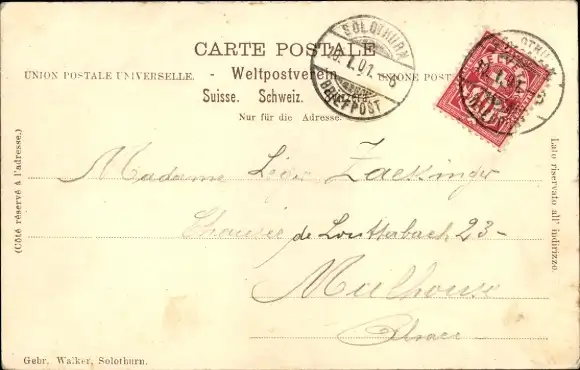 CARTE POSTALE
UNION POSTALE UNIVERSELLE. - Weltpostverein UNIONE POST
Suisse. Schweiz.
Nur für die Adresse.
SOLOTHURN
I.01.
BRIEFPOST
HELVETIA
(Côté réservé à l'adresse.)
Lato riservato all' indirizzo.
Madame Léger Zaekinger
Chaussée de Loutterbach 23-
Mulhouse
Alsace
Gebr. Walker, Solothurn.